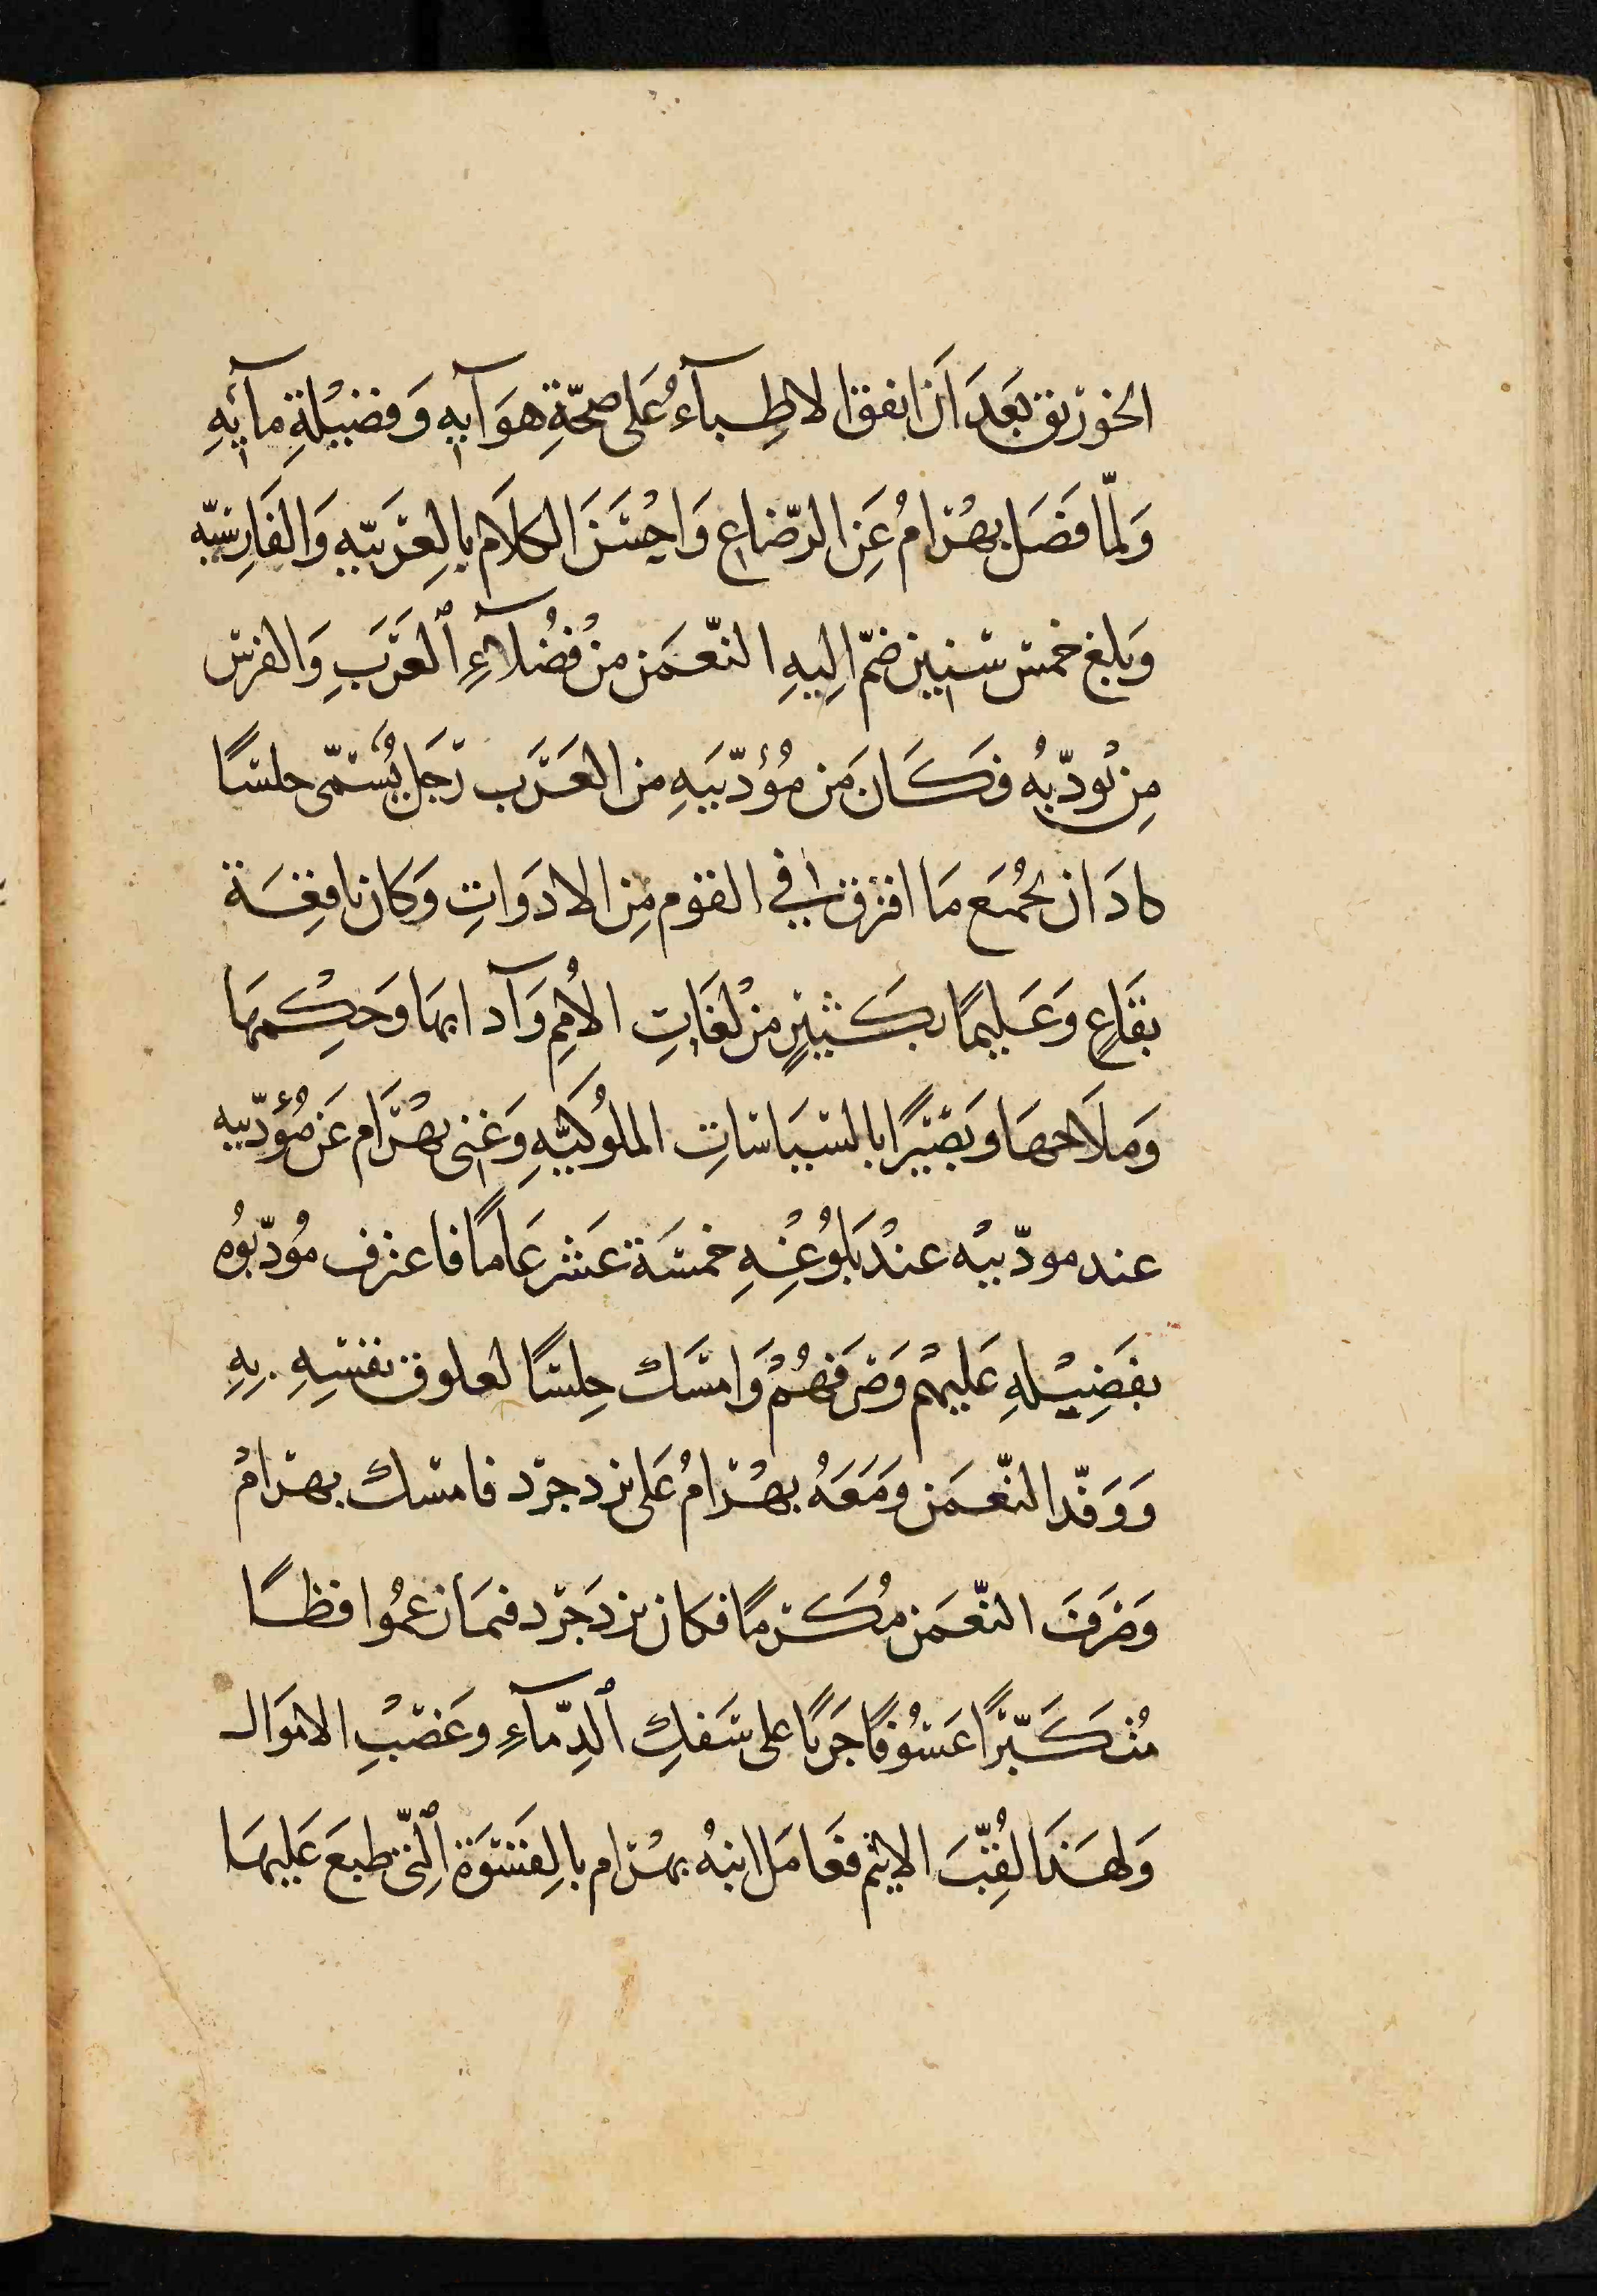 الخورنق بَعَدَ اَن اتفق الاطِبآءُ عَلى صحّةِ هوَآيهِ وَفضيْلةِ مآئهِ
وَلمّا فَصَل بهْرَامُ عَنِ الرّضاعِ وَاحْسَنَ الكلاَم بالعِرَبيّهِ وَالفَارِسيّه
وَبلغ خمس سنين ضمّ اِليهِ النّعمَن منْ فُضُلآءِ ٱلعَرَبِ وَالفرس
مِن يُودّبهُ فكَان مَن مُؤدّبيَهِ من العَرَب رَجَل يُسَمّى حلسًا
كادَ ان يجُمَع مَا افترق في القوم مِن الادَوَاتِ وَكان نافعِة
بقَاعٍ وَعَليمًا بكَثيْرٍ منْ لغَاتِ الاُممِ وَآدابها وَحِكْمهَا
وَملاَحمهَا وبَصيْرًا بالسّيَاسَاتِ الملُوكَيّهِ وَغنى بهْرَام عَن مُؤدّبيه
عند مودّبيْه عندْ بَلوُغْهِ خمسَة عَشر عَامًا فاعترف مُودّبوُه
بفَضِيْلهِ عَليهْم وَصَرفَهُمْ وَامسَك حِلسًا لعلوق نفسهِ بهِ
وَوَفدّ النّعمَن وَمَعَهُ بهْرَامُ عَلى يزدجرد فامسك بهرَامْ
وَصَرَفَ النّعمَن مُكَرمًا فكان يزدَجرد فيمَا زعمُوا فظًا
مُتكَبّرًا عَسُوفًا جَريًا على سَفكِ ٱلدِّمآءِ وعَصْبِ الامَوَال
وَلهَذَا لُقِّبَ الاثيم فعَامَل ابنهُ بهْرَام بالِقَسْوَة ٱلتّي طبعَ عَليهَا